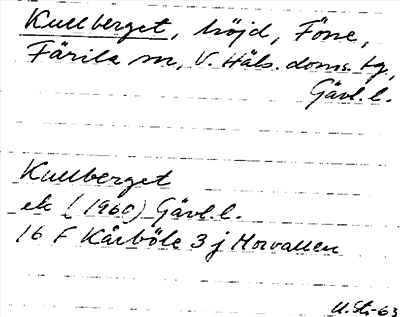 Kullberget, höjd, Föne,
Färila sn, V. Häls. doms. tg,
Gävl. l.
Kullberget
ek (1960) Gävl. l.
16 F Kårböle 3 j Morvallen
U. St-63